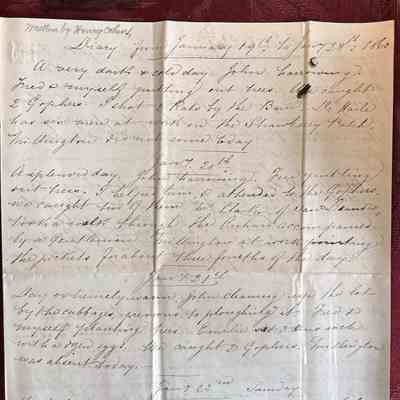 Written by Henry Cobus
Diary from January 19th to Jany 28th 1860
A very dark & cold day. John harrowing.
Fred & myself putting out trees. We caught
2 Gophers. I shot 2 Rats by the Barn. Mr
has six men at work on the Strawberry Patch.
Turlington did not come today
Jany 20th
A splendid day. John harrowing. Fred putting
out trees. I helped him, & attended to the Gophers.
we caught two of them. Mr Clark of
took a walk through the Orchard accompanied
by a Gentleman. Turlington at work pointing
the pickets for about three fourths of the day.
Jany 21st
Day extremely warm, John cleaning up the lot
by the cabbage, previous to ploughing it. Fred &
myself planting trees. Emelie set 2 hens each
with a dozen eggs. We caught 2 Gophers. Turlington
was absent today.
Jany 22nd Sunday